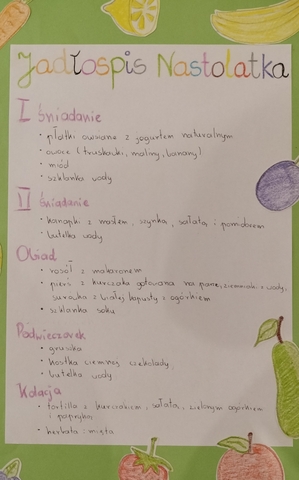 Jadłospis Nastolatka
I śniadanie
• płatki owsiane z jogurtem naturalnym
• owoce (truskawki, maliny, banany)
• miód
• szklanka wody
II śniadanie
• kanapki z masłem, szynką, sałatą i pomidorem
• butelka wody
Obiad
• rosół z makaronem
• pierś z kurczaka gotowana na parze, ziemniaki z wody,
surówka z białej kapusty z ogórkiem
• szklanka soku
Podwieczorek
• gruszka
• kostka ciemnej czekolady
• butelka wody
Kolacja
• tortilla z kurczakiem, sałatą, zielonym ogórkiem
i papryką
• herbata: mięta